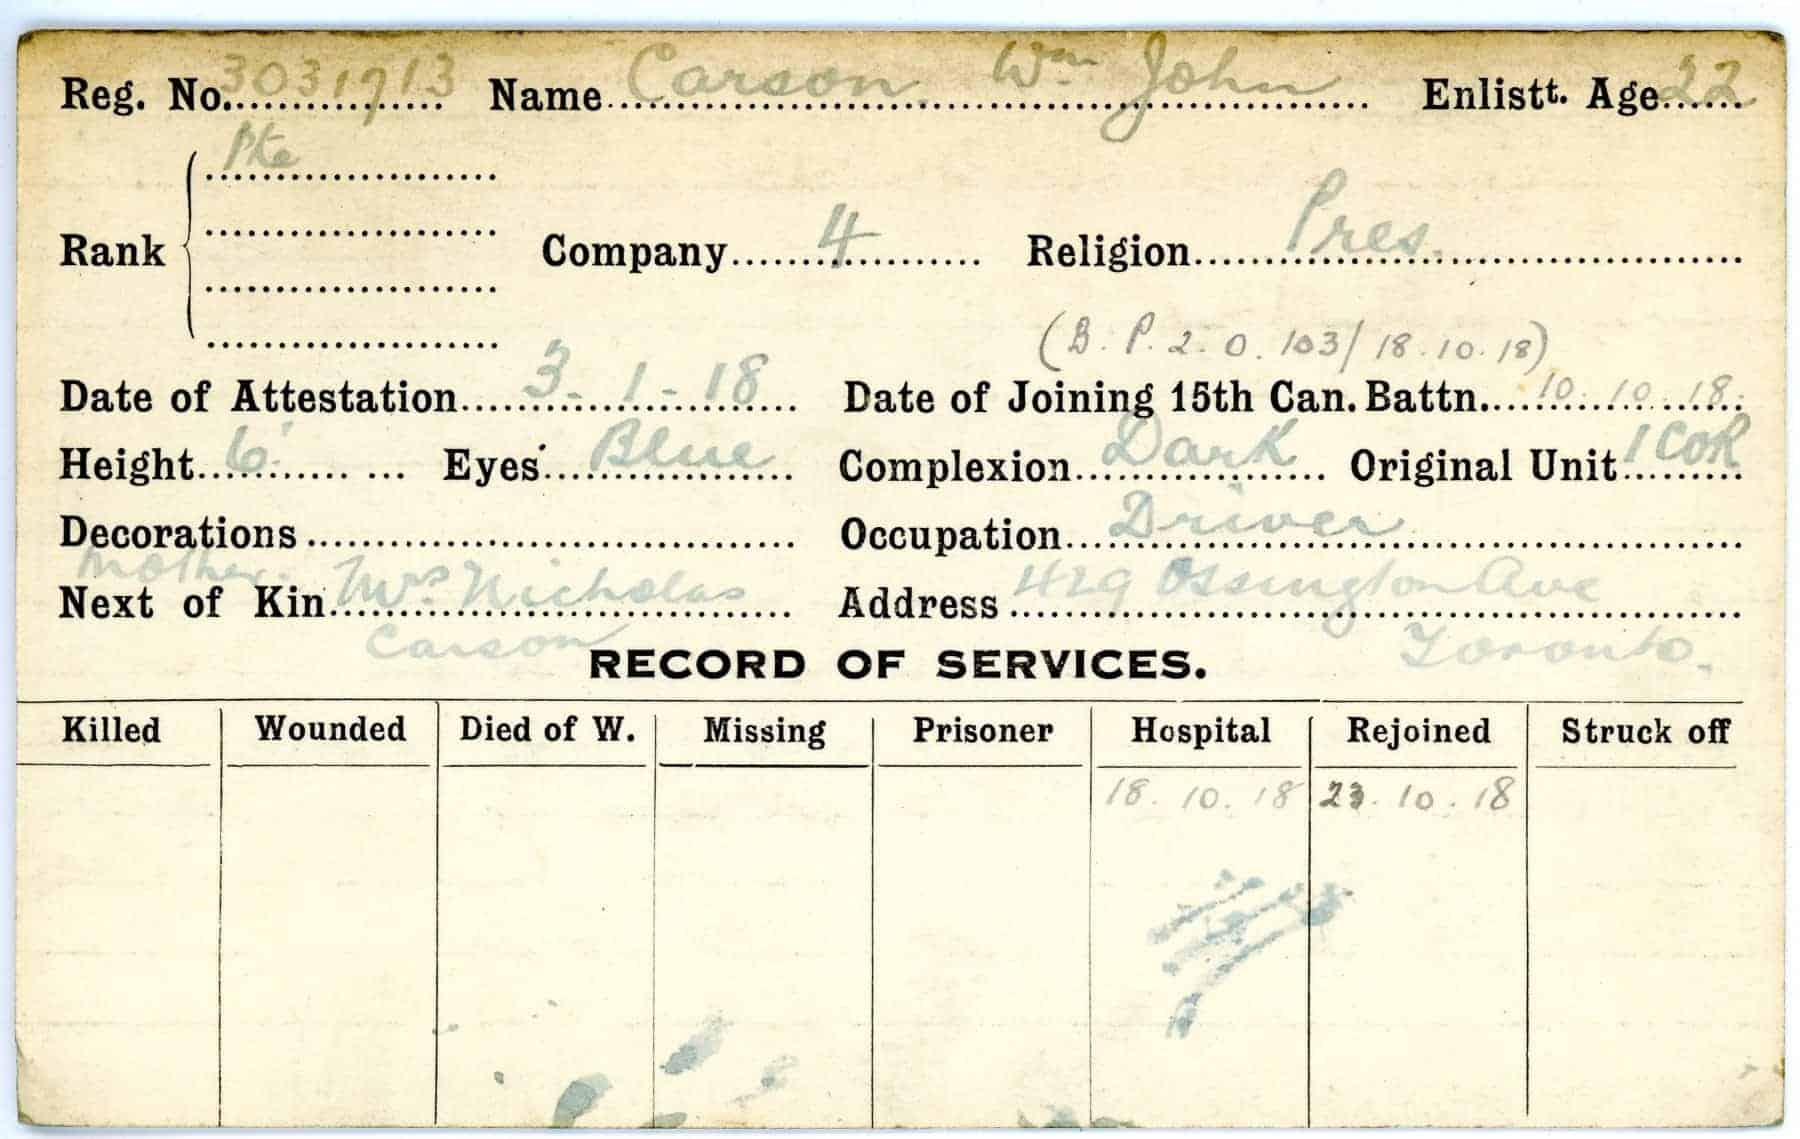 Reg. No. 3031713 Name Carson. Wm John Enlistt. Age 22
Pte
Rank Company 4 Religion Pres.
(B. P. 2. O. 103/18.10.18)
Date of Attestation 3-1-18 Date of Joining 15th Can. Battn. 10.10.18.
Height 6' Eyes Blue Complexion Dark Original Unit 1 COR
Decorations Occupation Driver
Mother.
Next of Kin Mrs Nicholas Address 429 Ossington Ave
Carson Toronto.
RECORD OF SERVICES.
Killed Wounded Died of W. Missing Prisoner Hospital Rejoined Struck off
18.10.18 23.10.18